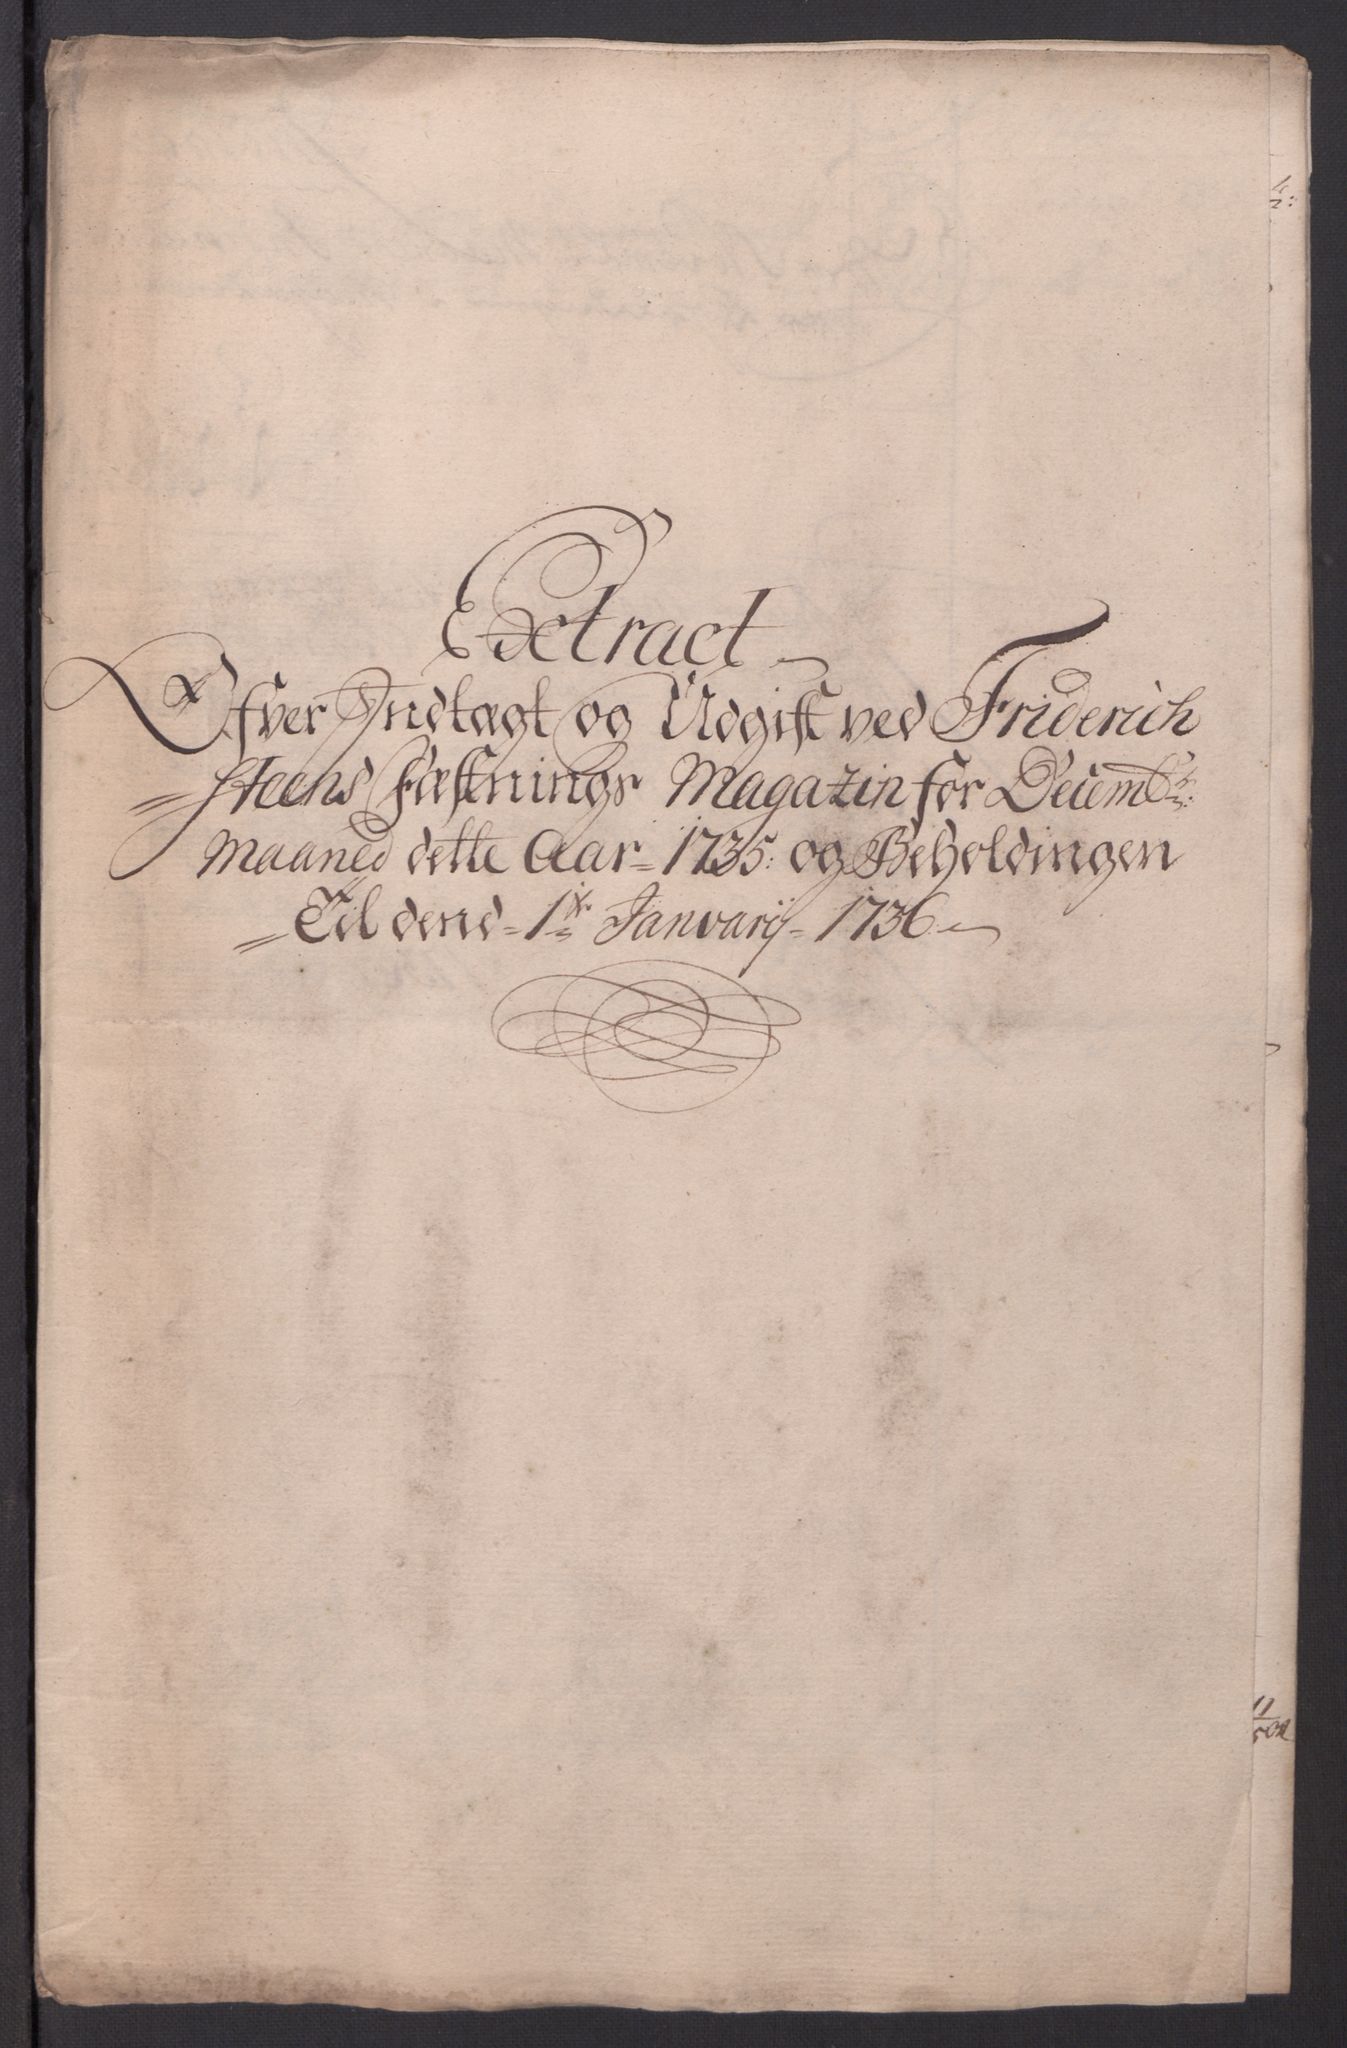 Extract
Ofver Indtægt og Udgift ved Friderich
steens Fæstnings Magazin for Decembr:
Maaned dette Aar 1735: og Beholdingen
Til dend 1te Januarij 1736